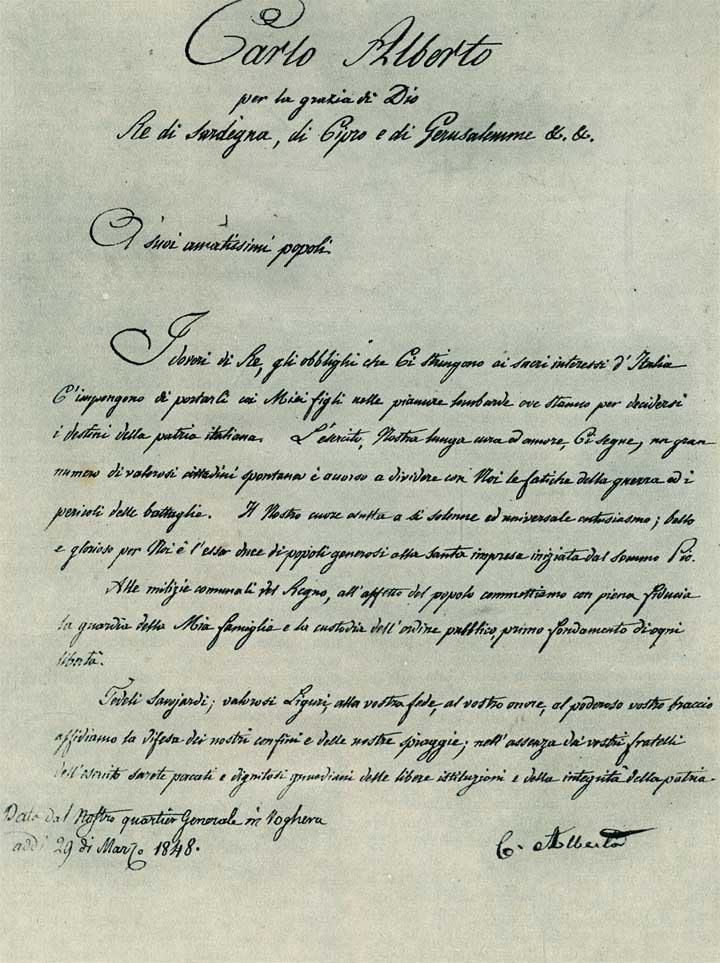 Carlo Alberto
per la grazia di Dio
Re di Sardegna, di Cipro e di Gerusalemme &. &.
A' suoi amatissimi popoli.
I doveri di Re, gli obblighi che Ci stringono ai sacri interessi d'Italia
C'impongono di portarCi coi Miei figli nelle pianure lombarde ove stanno per decidersi
i destini della patria italiana. L'esercito, Nostra lunga cura ed amore, Ci segue, un gran
numero di valorosi cittadini spontaneo è accorso a dividere con Noi le fatiche della guerra ed i
pericoli delle battaglie. Il Nostro cuore esulta a sì solenne ed universale entusiasmo; bello
e glorioso per Noi è l'esser duce di popoli generosi alla santa impresa iniziata dal Sommo Pio.
Alle milizie comunali del Regno, all'affetto del popolo commettiamo con piena fiducia
la guardia della Mia famiglia e la custodia dell'ordine pubblico, primo fondamento di ogni
libertà.
Fedeli Savojardi; valorosi Liguri, alla vostra fede, al vostro onore, al poderoso vostro braccio
affidiamo la difesa dei nostri confini e delle nostre spiaggie; nell'assenza de' vostri fratelli
dell'esercito sarete pacati e dignitosi guardiani delle libere istituzioni e della integrità della patria.
Dato dal Nostro quartier Generale in Voghera
addì 29 di Marzo 1848.
C. Alberto